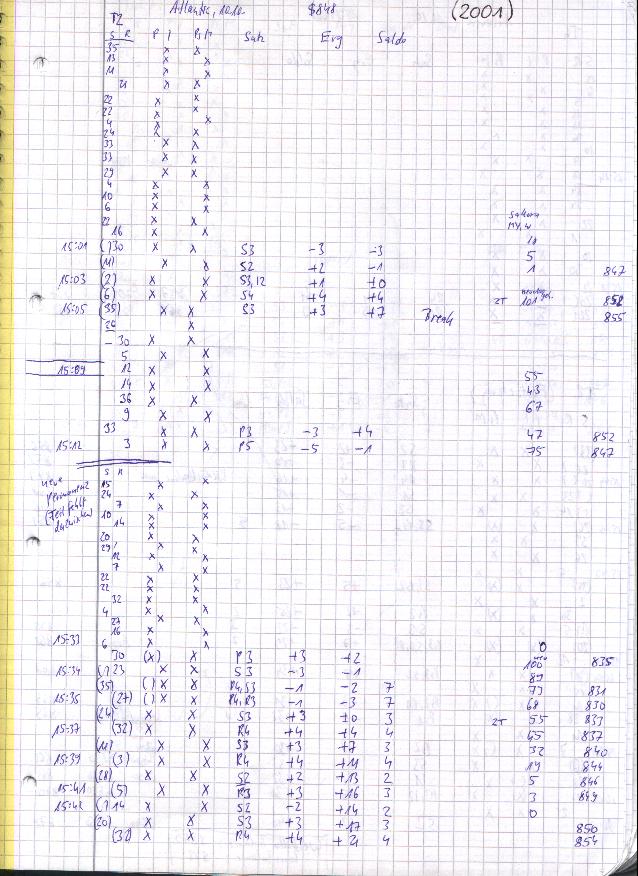 T2 Atlantic, $848 (2001)
S R P I P. H Satz Erg Saldo
35 x x
13 x x
11 x x
21 x x
22 x x
22 x x
4 x x
24 x x
33 x x
33 x x
29 x x
4 x x
10 x x
6 x x
22 x x
16 x x
15:01 30 x x S3 -3 -3
(11) x x S2 +2 -1 5
15:03 (2) x x S3,12 +1 ±0 1 847
(6) x x S4 +4 +4 2T 101 852
15:05 (35) x x S3 +3 +7 Break 855
26 x
30 x x
5 x x
15:09 12 x x 55
14 x x 43
36 x x 67
9 x x
33 x x P3 -3 +4 47 852
15:12 3 x x P5 -5 -1 75 847
S R
neue Permanenz (Teil fehlt dazwischen)
15 x x
24 x x
7 x x
10 x x
14 x x
20 x x
29 x x
12 x x
7 x x
22 x x
22 x x
32 x x
4 x x
27 x x
16 x x
15:33 6 x x 0
30 (x) x P3 +3 +2 100 835
15:34 23 x x S3 -3 -1 89
(35) x x R4,S3 -1 -2 7 79 831
15:35 (27) x x R4,R3 -1 -3 7 68 830
(24) x x S3 +3 ±0 3 2T 55 833
15:37 (32) x x R4 +4 +4 4 45 837
(11) x x S3 +3 +7 3 32 840
15:39 (3) x x R4 +4 +11 4 19 844
(28) x x S2 +2 +13 2 5 846
15:41 (5) x x P3 +3 +16 3 3 849
15:42 14 x x S2 -2 +14 2 0
(20) x x S3 +3 +17 3 850
(32) x x R4 +4 +21 4 854